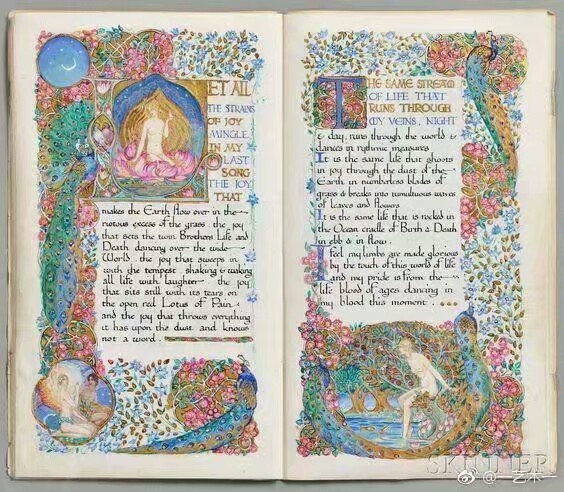 LET ALL
THE STRAINS
OF JOY
MINGLE
IN MY
LAST
SONG
THE JOY
THAT
makes the Earth flow over in the
riotous excess of the grass . the joy
that sets the twin Brothers Life and
Death dancing over the wide
World . the joy that sweeps in
with the tempest . shaking & waking
all life with laughter . the joy
that sits still with its tears on
the open red Lotus of Pain .
and the joy that throws everything
it has upon the dust and knows
not a word .
THE SAME STREAM
OF LIFE THAT
RUNS THROUGH
MY VEINS, NIGHT
& day, runs through the world &
dances in rythmic measures
It is the same life that shoots
in joy through the dust of the
Earth in numberless blades of
grass & breaks into tumultuous waves
of leaves and flowers
It is the same life that is rocked in
the Ocean cradle of Birth & Death
in ebb & in flow .
I feel my limbs are made glorious
by the touch of this world of life
and my pride is from the
life blood of ages dancing in
my blood this moment . . . .
SKINNER